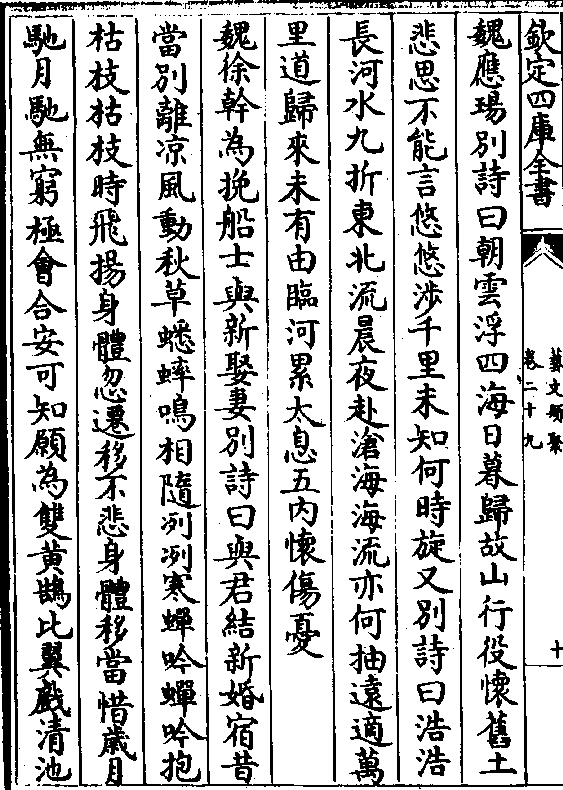 欽定四庫全書
藝文類聚
卷二十九
十
魏應瑒別詩曰朝雲浮四海日暮歸故山行役懷舊土
悲思不能言悠悠涉千里未知何時旋又別詩曰浩浩
長河水九折東北流晨夜赴滄海海流亦何抽遠適萬
里道歸來未有由臨河累太息五內懷傷憂
魏徐幹為挽船士與新娶妻別詩曰與君結新婚宿昔
當別離凉風動秋草蟋蟀鳴相隨冽冽寒蟬吟蟬吟抱
枯枝枯枝時飛揚身體忽遷移不悲身體移當惜歲月
馳月馳無窮極會合安可知願為雙黃鵠比翼戲清池